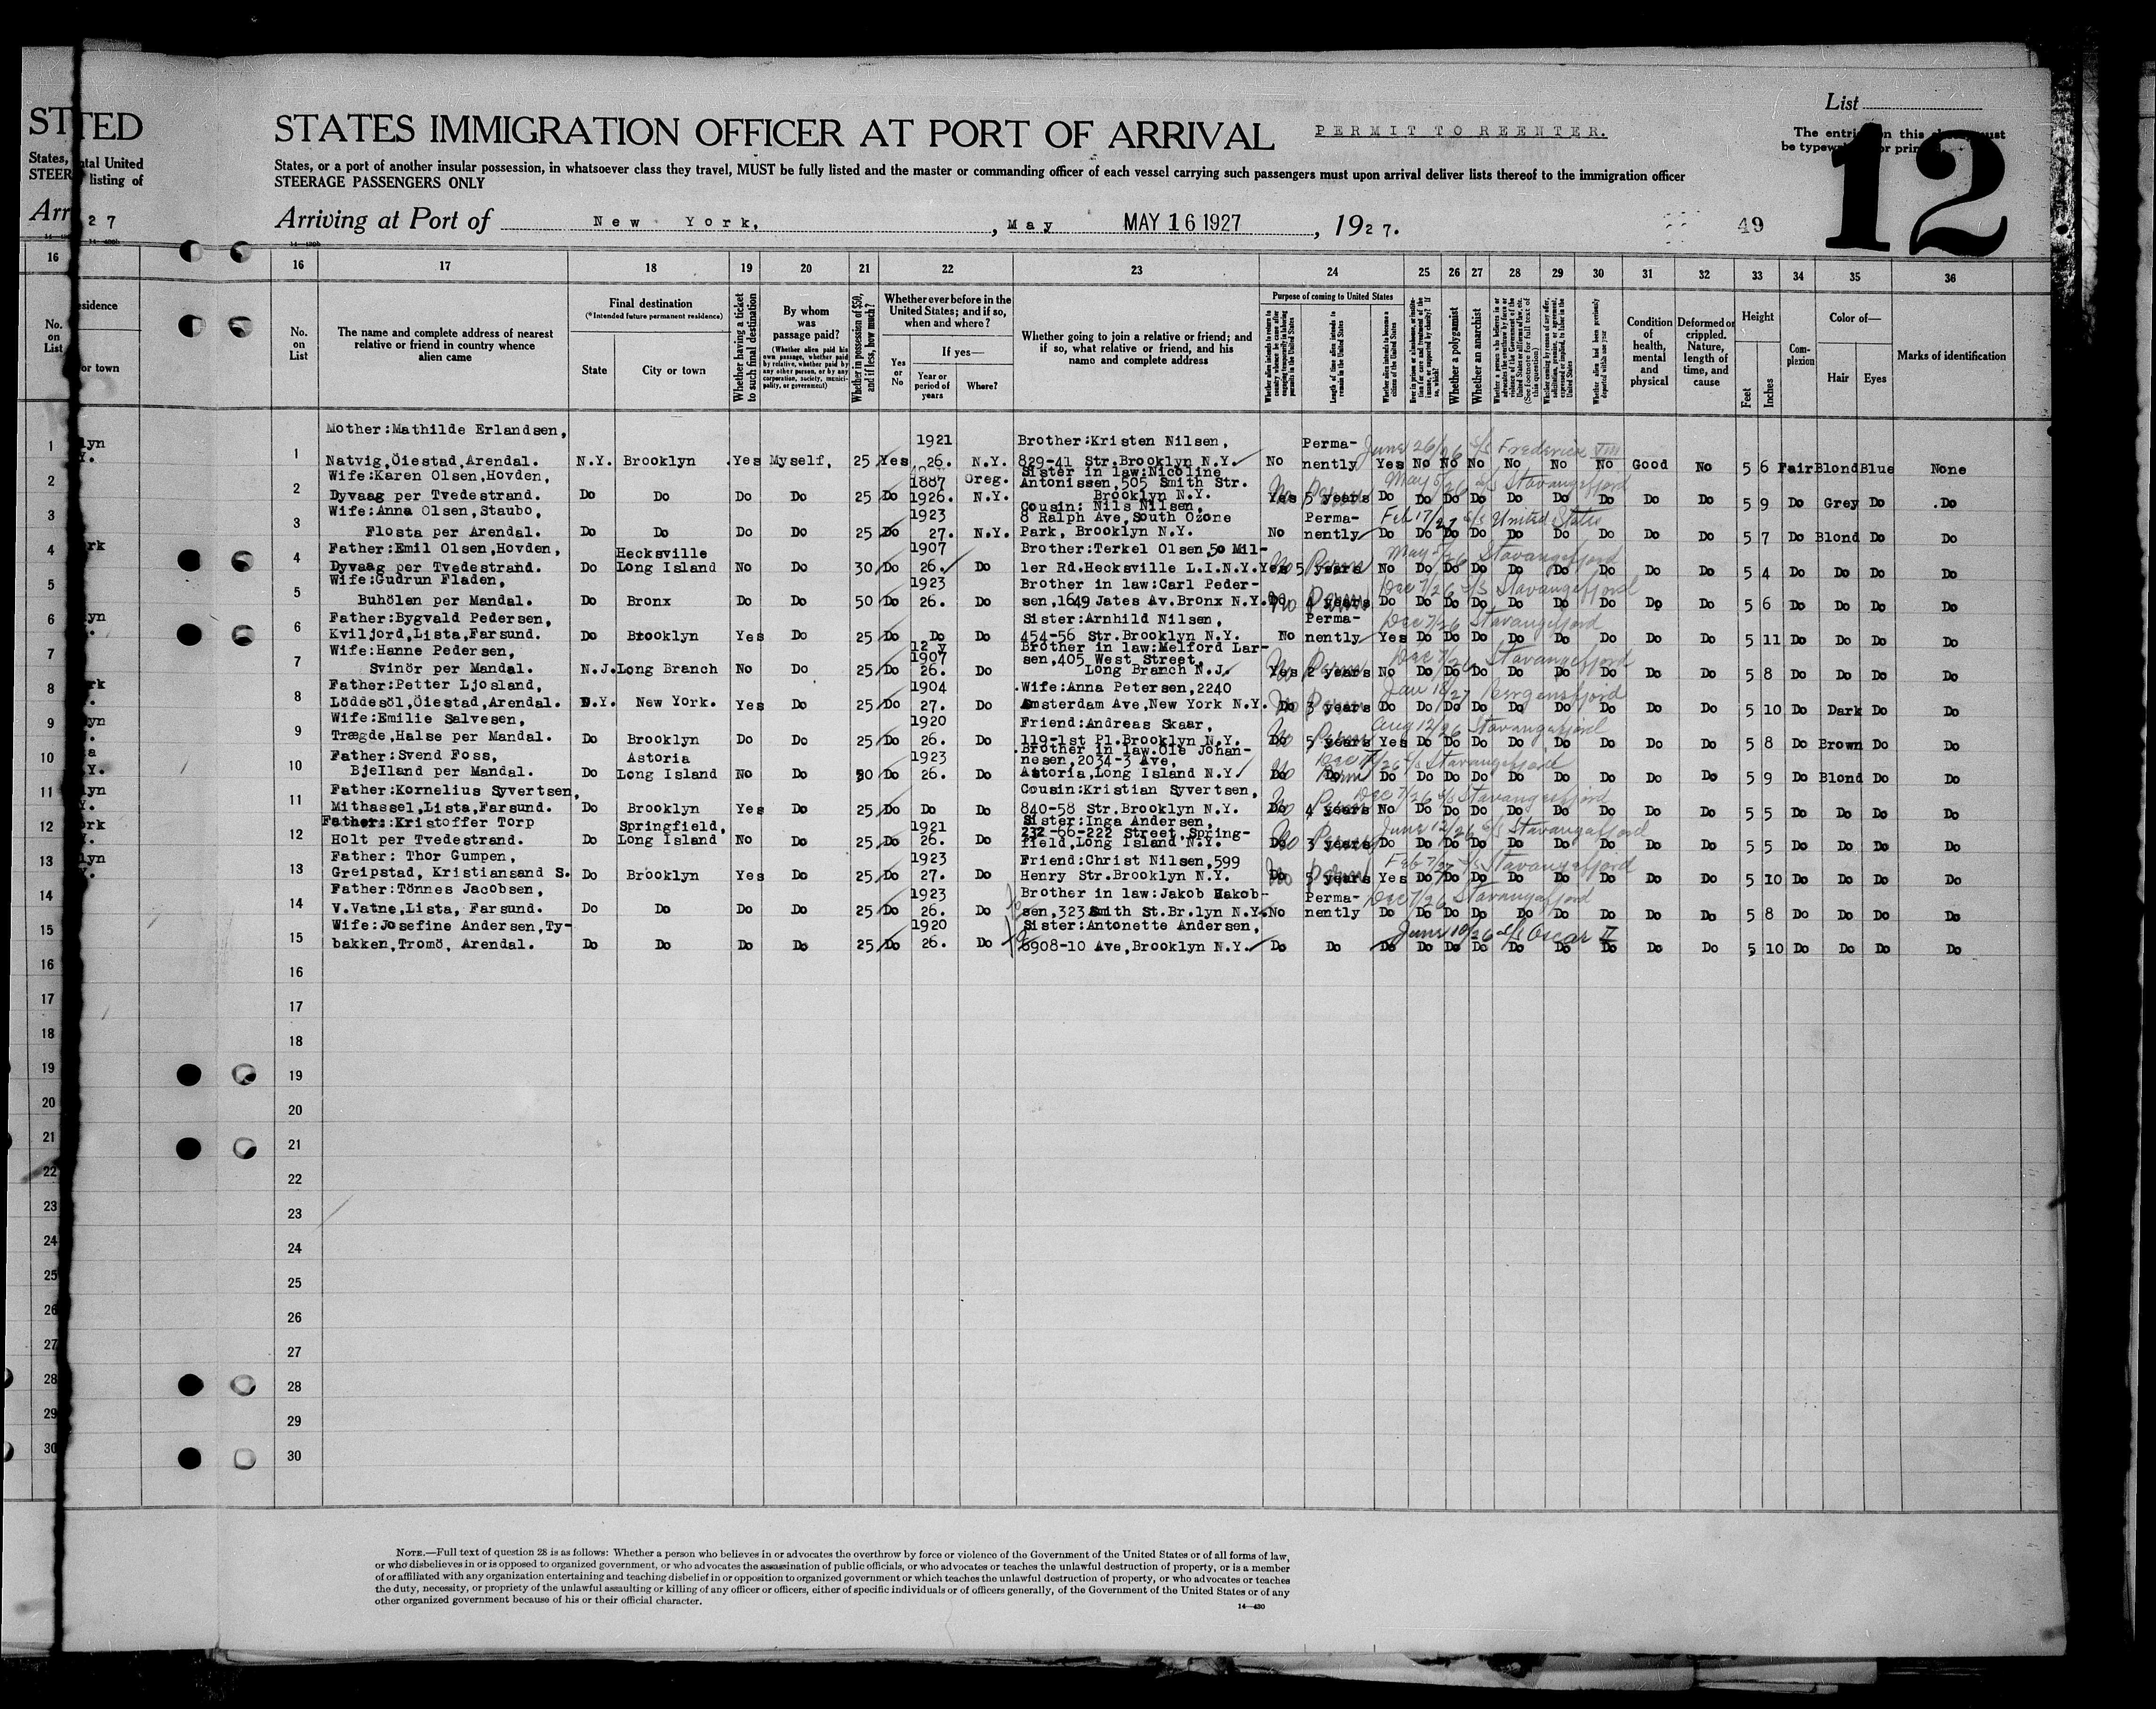 List
STATES IMMIGRATION OFFICER AT PORT OF ARRIVAL
PERMIT TO REENTER.
12
States, or a port of another insular possession, in whatsoever class they travel, MUST be fully listed and the master or commanding officer of each vessel carrying such passengers must upon arrival deliver lists thereof to the immigration officer
STEERAGE PASSENGERS ONLY
Arriving at Port of New York, , May MAY 16 1927 , 1927.
49
16 17 18 19 20 21 22 23 24 25 26 27 28 29 30 31 32 33 34 35 36
No. on List
The name and complete address of nearest relative or friend in country whence alien came
Final destination
(*Intended future permanent residence)
State
City or town
Whether having a ticket to such final destination
By whom was passage paid?
(Whether alien paid his own passage, whether paid by relative, whether paid by any other person, or by any corporation, society, municipality, or government)
Whether in possession of $50, and if less, how much?
Whether ever before in the United States; and if so, when and where?
Yes or No
If yes—
Year or period of years
Where?
Whether going to join a relative or friend; and if so, what relative or friend, and his name and complete address
Purpose of coming to United States
Length of time alien intends to remain in the United States
Whether alien intends to become a citizen of the United States
Whether a polygamist
Whether an anarchist
Condition of health, mental and physical
Deformed or crippled. Nature, length of time, and cause
Height
Feet
Inches
Complexion
Color of—
Hair
Eyes
Marks of identification
1 Mother:Mathilde Erlandsen, 1921 Brother:Kristen Nilsen, Perma- June 26/26 s/s Frederick VIII
Natvig,Öiestad,Arendal. N.Y. Brooklyn Yes Myself, 25 Yes 26. N.Y. 829-41 Str.Brooklyn N.Y. No nently Yes No No No No No No Good No 5 6 Fair Blond Blue None
2 Wife:Karen Olsen,Hovden, 1887 Oreg. Sister in law:Nicoline Antonissen,505 Smith Str. May 5/26 s/s Stavangerfjord
Dyvaag per Tvedestrand. Do Do Do Do 25 Do 1926. N.Y. Brooklyn N.Y. Yes No 5 years Perm Do Do Do Do Do Do Do Do Do 5 9 Do Grey Do Do
3 Wife:Anna Olsen,Staubo, 1923 Cousin: Nils Nilsen, 8 Ralph Ave,South Ozone Perma- Feb 17/27 s/s United States
Flosta per Arendal. Do Do Do Do 25 Do 27. N.Y. Park, Brooklyn N.Y. No nently Do Do Do Do Do Do Do Do Do 5 7 Do Blond Do Do
4 Father:Emil Olsen,Hovden, Hecksville 1907 Brother:Terkel Olsen,50 Mil- May 5/26 Stavangerfjord
Dyvaag per Tvedestrand. Do Long Island No Do 30 Do 26. Do ler Rd.Hecksville L.I.N.Y. Yes No 5 years Perm No Do Do Do Do Do Do Do Do 5 4 Do Do Do Do
5 Wife:Gudrun Fladen, 1923 Brother in law:Carl Peder- Dec 7/26 s/s Stavangerfjord
Buhölen per Mandal. Do Bronx Do Do 50 Do 26. Do sen,1649 Jates Av.Bronx N.Y. Do No 4 years Perm Do Do Do Do Do Do Do Do Do 5 6 Do Do Do Do
6 Father:Bygvald Pedersen, Sister:Arnhild Nilsen, Perma- Dec 7/26 Stavangerfjord
Kviljord,Lista,Farsund. Do Brooklyn Yes Do 25 Do Do Do 454-56 Str.Brooklyn N.Y. No nently Yes Do Do Do Do Do Do Do Do 5 11 Do Do Do Do
7 Wife:Hanne Pedersen, 12 y 1907 Brother in law:Melford Lar- sen,405 West Street, Dec 7/26 Stavangerfjord
Svinör per Mandal. N.J. Long Branch No Do 25 Do 26. Do Long Branch N.J. Yes No 2 years Perm No Do Do Do Do Do Do Do Do 5 8 Do Do Do Do
8 Father:Petter Ljosland, 1904 Wife:Anna Petersen,2240 Jan 18/27 Bergensfjord
Löddesöl,Öiestad,Arendal. N.Y. New York. Yes Do 25 Do 27. Do Amsterdam Ave,New York N.Y. Do No 3 years Perm Do Do Do Do Do Do Do Do Do 5 10 Do Dark Do Do
9 Wife:Emilie Salvesen, 1920 Friend:Andreas Skaar, Aug 12/26 Stavangerfjord
Trægde,Halse per Mandal. Do Brooklyn Do Do 25 Do 26. Do 119-1st Pl.Brooklyn N.Y. Do No 5 years Perm Yes Do Do Do Do Do Do Do Do 5 8 Do Brown Do Do
10 Father:Svend Foss, Astoria 1923 Brother in law.Ole Johan- nesen,2034-3 Ave, Dec 7/26 s/s Stavangerfjord
Bjelland per Mandal. Do Long Island No Do 50 Do 26. Do Astoria,Long Island N.Y. Do No Do Perm Do Do Do Do Do Do Do Do Do 5 9 Do Blond Do Do
11 Father:Kornelius Syvertsen, Cousin:Kristian Syvertsen, Dec 7/26 s/s Stavangerfjord
Mithassel,Lista,Farsund. Do Brooklyn Yes Do 25 Do Do Do 840-58 Str.Brooklyn N.Y. Do No 4 years Perm No Do Do Do Do Do Do Do Do 5 5 Do Do Do Do
12 Father::Kristoffer Torp Springfield, 1921 Sister:Inga Andersen, 232-66-222 Street,Spring- June 12/26 s/s Stavangerfjord
Holt per Tvedestrand. Do Long Island No Do 25 Do 26. Do field,Long Island N.Y. Do No 3 years Perm Do Do Do Do Do Do Do Do Do 5 5 Do Do Do Do
13 Father: Thor Gumpen, 1923 Friend:Christ Nilsen,599 Feb 7/27 s/s Stavangerfjord
Greipstad, Kristiansand S. Do Brooklyn Yes Do 25 Do 27. Do Henry Str.Brooklyn N.Y. Do No 5 years Perm Yes Do Do Do Do Do Do Do Do 5 10 Do Do Do Do
14 Father:Tönnes Jacobsen, 1923 Brother in law:Jakob Hakob- Perma- Dec 7/26 Stavangerfjord
V.Vatne,Lista, Farsund. Do Do Do Do 25 Do 26. Do sen,323 Smith St.Br.lyn N.Y. No nently Do Do Do Do Do Do Do Do Do 5 8 Do Do Do Do
15 Wife:Josefine Andersen,Ty- 1920 Sister:Antonette Andersen, June 10/26 s/s Oscar II
bakken,Tromö, Arendal. Do Do Do Do 25 Do 26. Do 6908-10 Ave,Brooklyn N.Y. Do Do Do Do Do Do Do Do Do Do Do 5 10 Do Do Do Do
16
17
18
19
20
21
22
23
24
25
26
27
28
29
30
NOTE.—Full text of question 28 is as follows: Whether a person who believes in or advocates the overthrow by force or violence of the Government of the United States or of all forms of law,
or who disbelieves in or is opposed to organized government, or who advocates the assassination of public officials, or who advocates or teaches the unlawful destruction of property, or is a member
of or affiliated with any organization entertaining and teaching disbelief in or opposition to organized government or which teaches the unlawful destruction of property, or who advocates or teaches
the duty, necessity, or propriety of the unlawful assaulting or killing of any officer or officers, either of specific individuals or of officers generally, of the Government of the United States or of any
other organized government because of his or their official character.
14—430